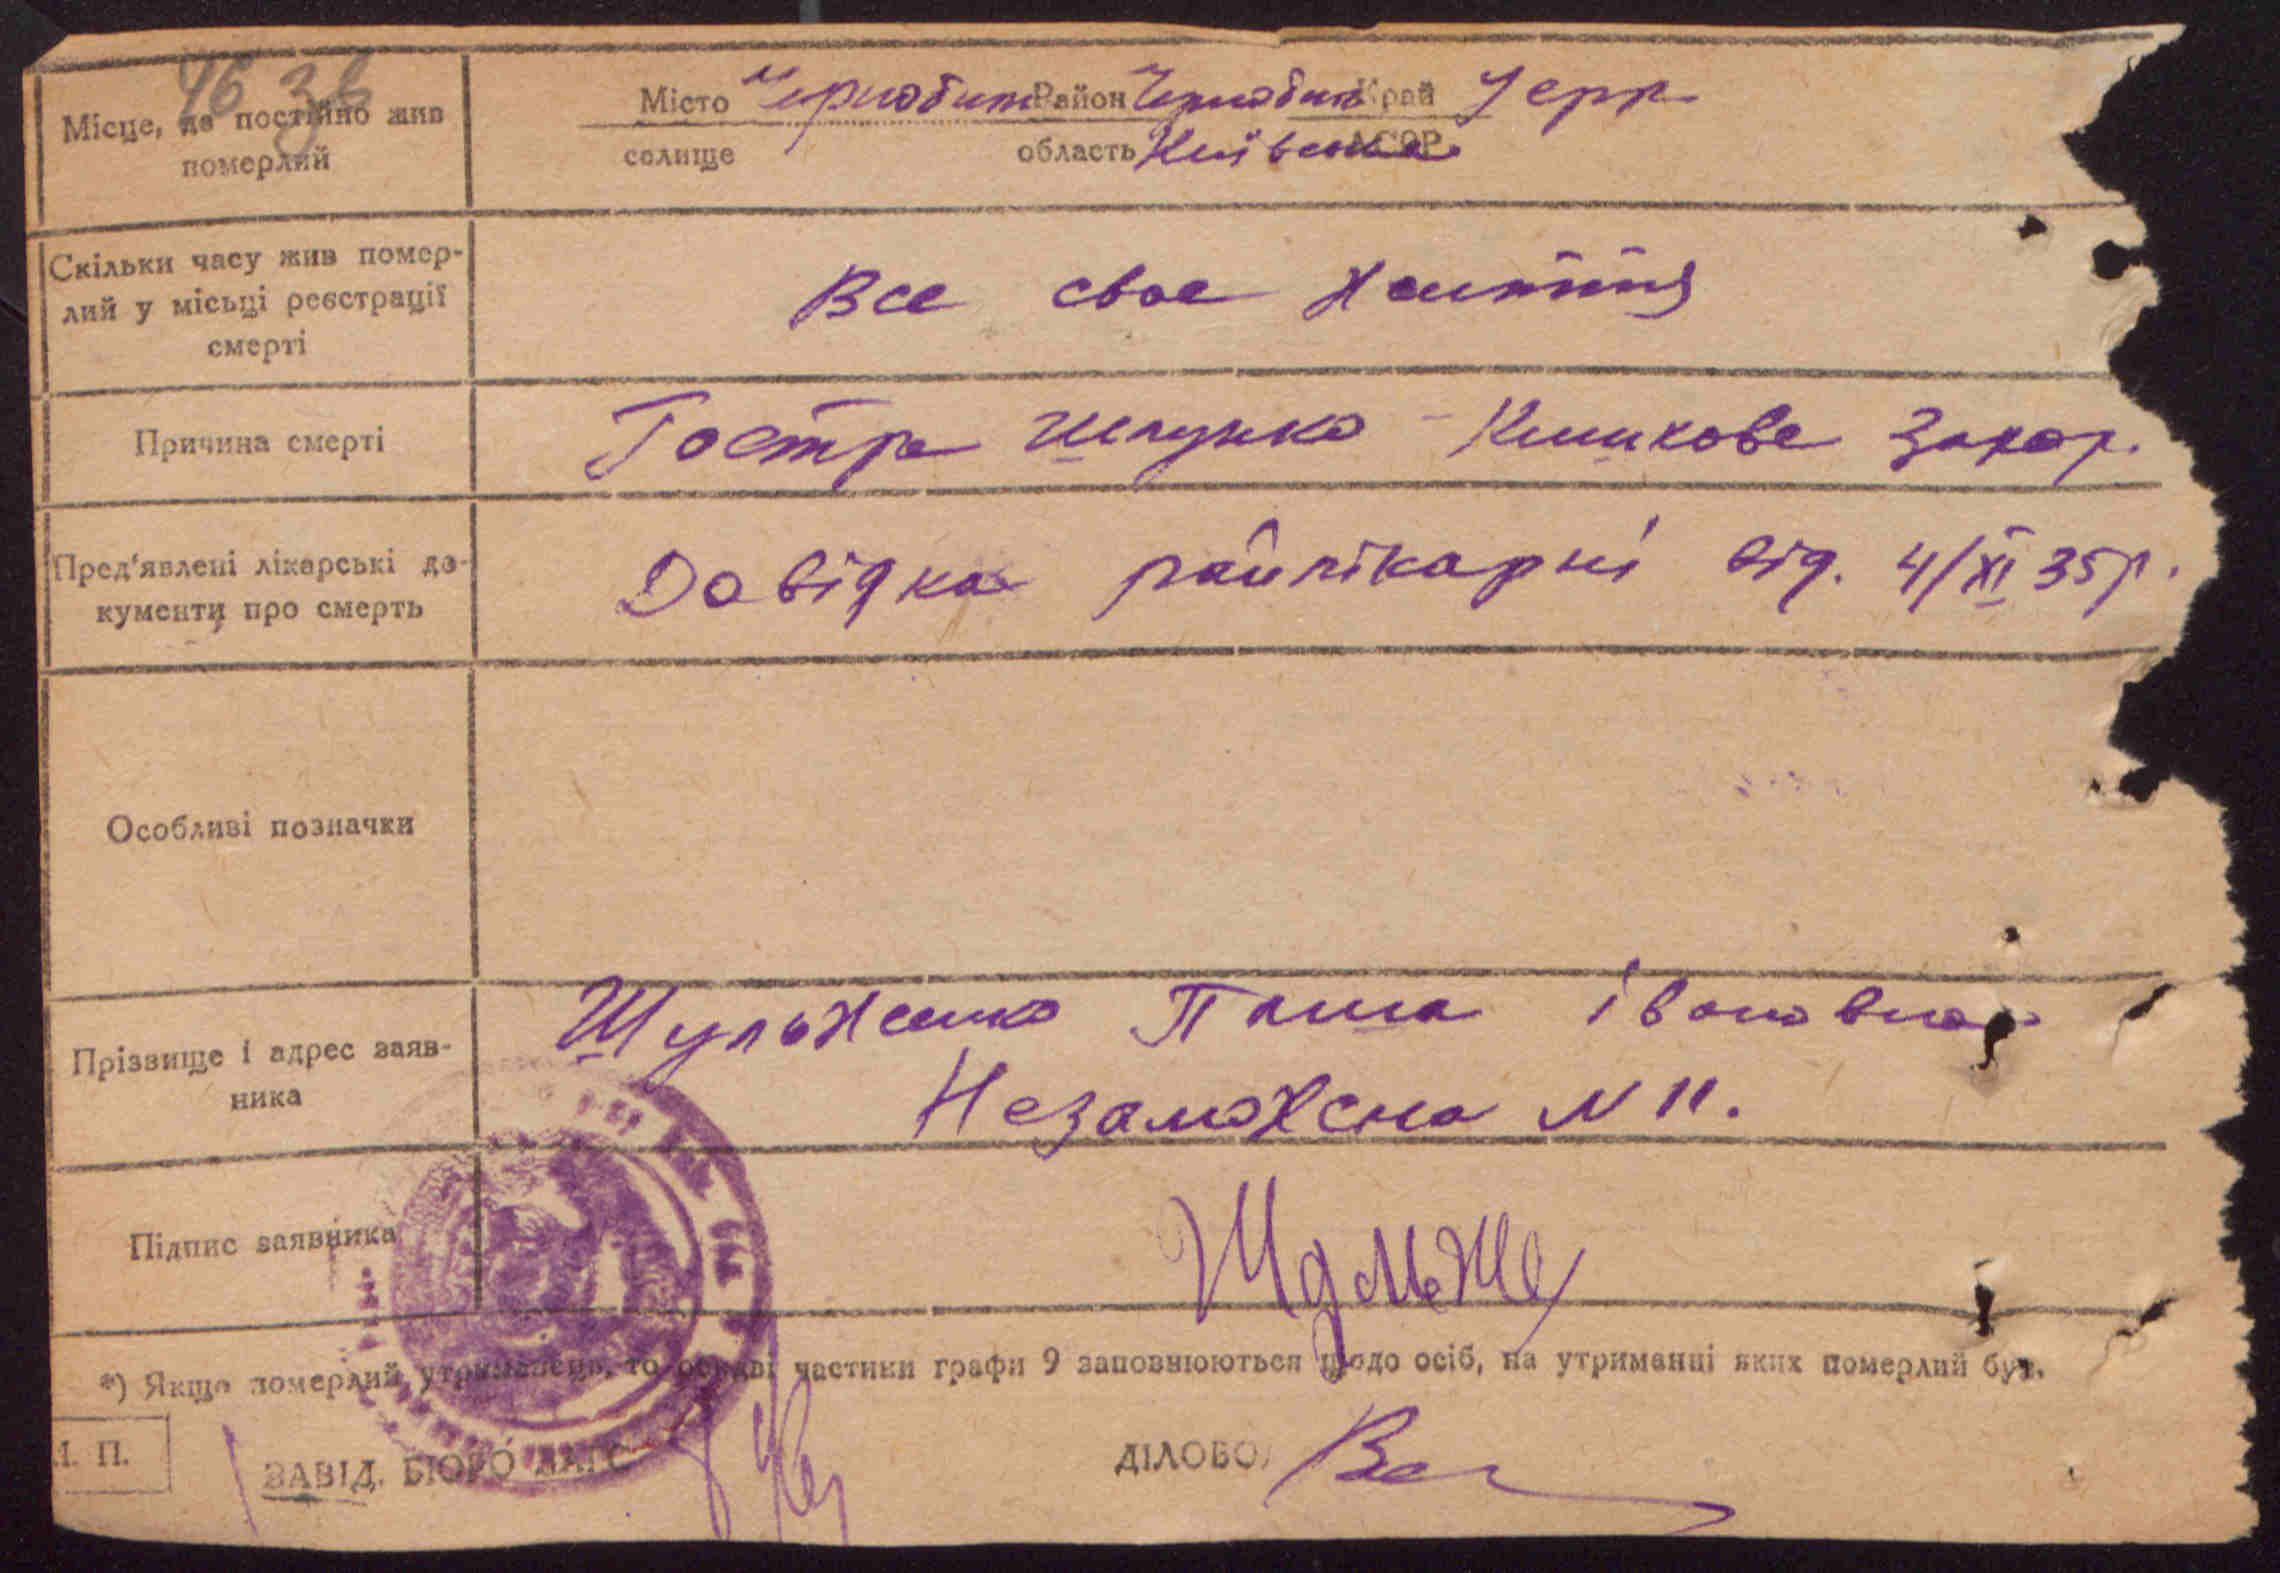 46 38
Місце, де постійно жив
померлий
Місто Чорнобиль Район Чорнобиль Край Усрр
селище область Київська АСРР
Скільки часу жив помер-
лий у місьці реєстрації
смерті
Все своє життя
Причина смерті
Гостре шлунко-кишкове захор.
Пред'явлені лікарські до-
кументи про смерть
Довідка райлікарні від. 4/XI 35р.
Особливі позначки
Прізвище і адрес заяв-
ника
Шульженко Паша Івановна
Незаможена N 11.
Підпис заявника
Шульже
*) Якщо померлий утриманець, то обидві частини графи 9 заповнюються щодо осіб, на утриманні яких померлий був.
М. П.
ЗАВІД. БЮРО ЗАГС
ДІЛОВОД